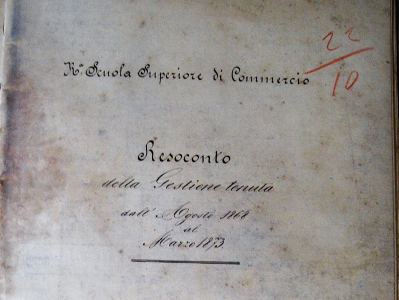 22
10
Rª Scuola Superiore di Commercio
Resoconto
della Gestione tenuta
dall' Agosto 1868
al
Marzo 1873.